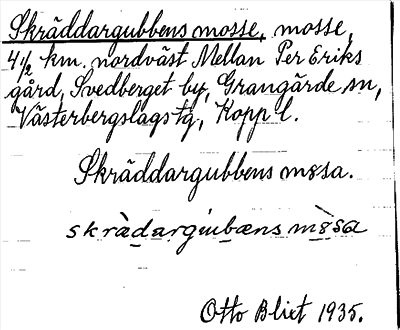 Skräddargubbens mosse, mosse,
4½ km. nordväst Mellan Per Eriks
gård, Svedberget by, Grangärde sn,
Västerbergslags tg, Kopp l.
Skräddargubbens m8sa.
skràdargubæns m8̀sa
Otto Blixt 1935.